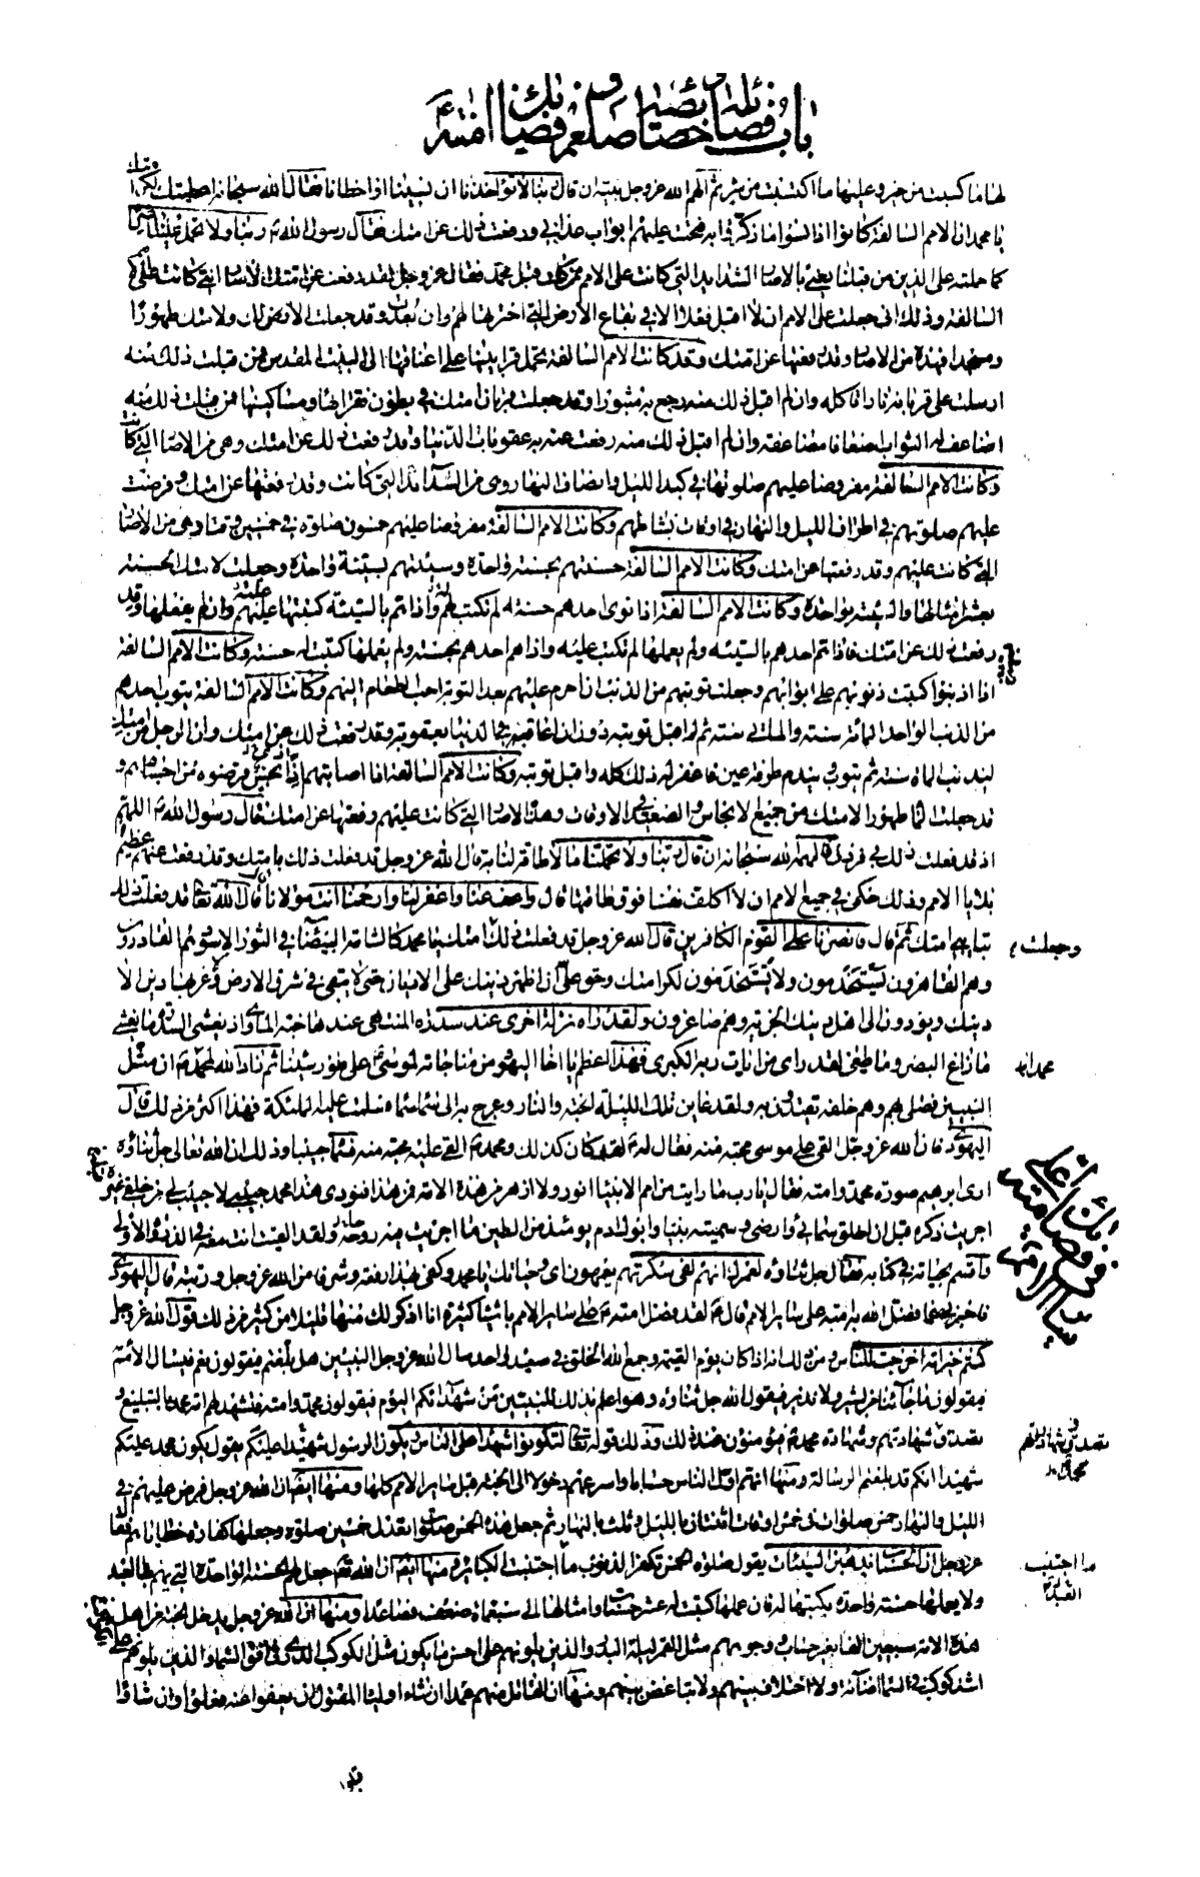 باب فضائله و خصائصه صلعم و فضائل امته
لها ما كسبت من خير وعليها ما اكتسبت من شر ثم الهم الله عز وجل نبيه ان قال ربنا لا تؤاخذنا ان نسينا او اخطانا فقال الله سبحانه اعطيتك لكرامتك
يا محمد ان الامم السالفة كانوا اذا نسوا ما ذكروا به فتحت عليهم ابواب عذابي ورفعت ذلك عن امتك فقال رسول الله ربنا ولا تحمل علينا اصرا
كما حملته على الذين من قبلنا يعني بالاصار الشدايد التي كانت على الامم من كان قبل محمد فقال عز وجل لقد رفعت عن امتك الاصار التي كانت على
السالفة وذلك اني جعلت على الامم ان لا اقبل فعلا الا في بقاع الارض التي اخترتها لهم وان بعدت وقد جعلت الارض لك ولامتك طهورا
ومسجدا فهذه من الاصار وقد رفعتها عن امتك وقد كانت الامم السالفة تحمل قرابينها على اعناقها الى البيت المقدس فمن قبلت ذلك منه
ارسلت على قربانه نارا فاكله وان لم اقبل ذلك منه رجع به مثبورا وقد جعلت قربان امتك في بطون فقرائها ومساكينها فمن قبلت ذلك منه
اضاعف له الثواب اضعافا مضاعفة وان لم اقبل ذلك منه رفعت عنه به عقوبات الدنيا وقد رفعت ذلك عن امتك وهي من الاصار التي كانت
وكانت الامم السالفة مفروضا عليهم صلوتها في كبد الليل وانصاف النهار وهي من الشدائد التي كانت وقد رفعتها عن امتك وفرضت
عليهم صلوتهم في اطراف الليل والنهار في اوقات نشاطهم وكانت الامم السالفة مفروضا عليهم خمسون صلوة في خمسين وقتا وهي من الاصار
التي كانت عليهم وقد رفعتها عن امتك وكانت الامم السالفة حسنتهم بحسنة واحدة وسيئتهم بسيئة واحدة وجعلت لامتك الحسنة
بعشر امثالها والسيئة بواحدة وكانت الامم السالفة اذا نوى احدهم حسنة لم تكتب لهم واذا هم بالسيئة كتبتها عليهم وان لم يفعلها وقد
رفعت ذلك عن امتك فاذا هم احدهم بالسيئة ولم يعملها لم تكتب عليه واذا هم احدهم بحسنة ولم يعملها كتبت له حسنة وكانت الامم السالفة
اذا اذنبوا كتبت ذنوبهم على ابوابهم وجعلت توبتهم من الذنب ان احرم عليهم بعد التوبة احب الطعام اليهم وكانت الامم السالفة يتوب احدهم
من الذنب الواحد المائة سنة والمأتي سنة ثم لم اقبل توبته دون ان اعاقبه في الدنيا بعقوبة وقد رفعت ذلك عن امتك وان الرجل من امتك
ليذنب المائة سنة ثم يتوب ويندم طرفة عين فاغفر له ذلك كله واقبل توبته وكانت الامم السالفة اذا اصابهم اذى نجس قرضوه من اجسادهم و
قد جعلت الماء طهورا لامتك من جميع الانجاس والصعيد في الاوقات وهذه الاصار التي كانت عليهم ورفعتها عن امتك فقال رسول الله اللهم
اذ قد فعلت ذلك بي فزدني فالهمه الله سبحانه ان قال ربنا ولا تحملنا ما لا طاقة لنا به قال الله عز وجل قد فعلت ذلك بامتك وقد رفعت عنهم عظيم
بلايا الامم وذلك حكمي في جميع الامم ان لا اكلف نفسا فوق طاقتها قال واعف عنا واغفر لنا وارحمنا انت مولانا قال الله تعالى قد فعلت ذلك
بتايبي امتك ثم قال فانصرنا على القوم الكافرين قال الله عز وجل قد فعلت ذلك وجعلت امتك يا محمد كالشامة البيضاء في الثور الاسود هم القادرون
وهم القاهرون يستخدمون ولا يستخدمون لكرامتك وحق علي ان اظهر دينك على الاديان حتى لا يبقى في شرق الارض وغربها دين الا
دينك ويؤدون الى اهل دينك الجزية وهم صاغرون ولقد رآه نزلة اخرى عند سدرة المنتهى عندها جنة المأوى اذ يغشى السدرة ما يغشى
ما زاغ البصر وما طغى لقد راى من ايات ربه الكبرى فهذا اعظم يا اخا اليهود من مناجاته لموسى على طور سيناء ثم زاد الله لمحمد ان مثل
النبيين فصلى بهم وهم خلفه يقتدون به ولقد عاين تلك الليلة الجنة والنار وعرج به الى سماء سماء سلمت عليه الملئكة فهذا اكثر من ذلك قال
اليهودي فان الله عز وجل القى على موسى محبة منه فقال له لقد كان كذلك ومحمد القى عليه محبة منه فسماه حبيبا وذلك ان الله تعالى جل ثناؤه
ارى ابرهيم صورة محمد وامته فقال يا رب ما رايت من امم الانبيا انور ولا ازهر من هذه الامة فمن هذا فنودي هذا محمد حبيبي لا حبيب لي من خلقي غيره
اجريت ذكره قبل ان اخلق سمائي وارضي وسميته نبيا وابوك ادم يومئذ من الطين ما اجريت فيه روحه ولقد القيت انت معه في الذروة الاولى
واقسم بحياته في كتابه فقال جل ثناؤه لعمرك انهم لفي سكرتهم يعمهون اي وحياتك يا محمد وكفى بهذا رفعة وشرفا من الله عز وجل ورتبة قال اليهودي
فاخبرني عما فضل الله به امته على سائر الامم قال لقد فضل امته على ساير الامم باشياء كثيرة انا اذكر لك منها قليلا من كثير من ذلك قول الله عز وجل
كنتم خير امة اخرجت للناس ومن ذلك انه اذا كان يوم القيمة وجمع الله الخلق في صعيد واحد سال الله عز وجل النبيين هل بلغتم فيقولون نعم فيسال الامم
فيقولون ما جاءنا من بشير ولا نذير فيقول الله جل ثناؤه وهو اعلم بذلك للنبيين من شهداؤكم اليوم فيقولون محمد وامته فتشهد لهم امة محمد بالتبليغ و
تصدق شهادتهم وشهادة محمد فيؤمنون عند ذلك وذلك قوله تعالى لتكونوا شهداء على الناس ويكون الرسول عليكم شهيدا يقول يكون محمد عليكم
شهيدا انكم قد بلغتم الرسالة ومنها انهم اول الناس حسابا واسرعهم دخولا الى الجنة قبل ساير الامم كلها ومنها ايضا ان الله عز وجل فرض عليهم في
الليل والنهار خمس صلوات في خمس اوقات اثنتان بالليل وثلث بالنهار ثم جعل هذه الخمس صلوات تعدل خمسين صلوة وجعلها كفارة خطاياهم فقال
عز وجل ان الحسنات يذهبن السيئات يقول صلوة الخمس تكفر الذنوب ما اجتنبت الكبائر ومنها ايضا ان الله تعالى جعل لهم الحسنة الواحدة التي يهم بها العبد
ولا يعملها حسنة واحدة يكتبها له فان عملها كتبت له عشر حسنات وامثالها الى سبعمائة ضعف فصاعدا ومنها ان الله عز وجل يدخل الجنة من اهل
هذه الامة سبعين الفا بغير حساب وجوههم مثل القمر ليلة البدر والذين يلونهم على احسن ما يكون مثل الكوكب الدري في افق السماء والذين يلونهم على
اشد كوكب في السماء اضاءة ولا اختلاف بينهم ولا تباغض بينهم ومنها ان القاتل منهم عمدا ان شاء اولياء المقتول ان يعفوا عنه فعلوا وان شاؤا
وجعلت
ما اجتنب
العبد